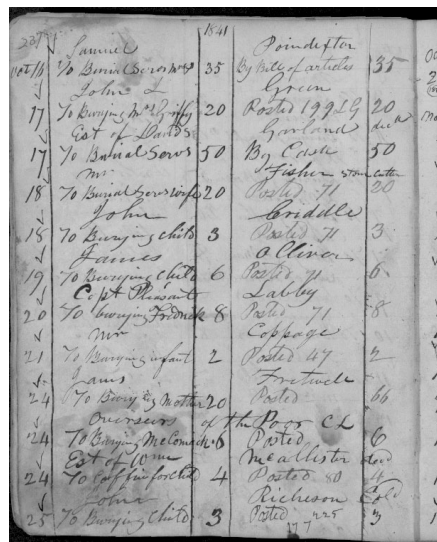 1841
Samuel Poindexter
Oct 16 To Burial Servs 35 By Bill of articles 35
John L Green
17 To Burying Mrs 20 Posted 199 LG 20
Est of David S Garland decd
17 To Burial Servs 50 By Cash 50
Mr Fisher stone cutter
18 To Burial Servs wife 20 Posted 71 20
John Criddle
18 To Burying child 3 Posted 71 3
James Oliver
19 To Burying Child 6 Posted 71 6
Capt Pleasant Labby
20 To burying Fredrick 8 Posted 71 8
Mr Coppage
21 To Burying infant 2 Posted 47 2
James Fretwell
24 To Burying Mother 20 Posted
Overseers of the Poor CL
24 To Burying McComack 6 Posted 6
Est of Wm McAllister decd
24 To Coffin for child 4 Posted 80 4
John Richeson Cold
25 To Burying Child 3 Posted 225 3
177